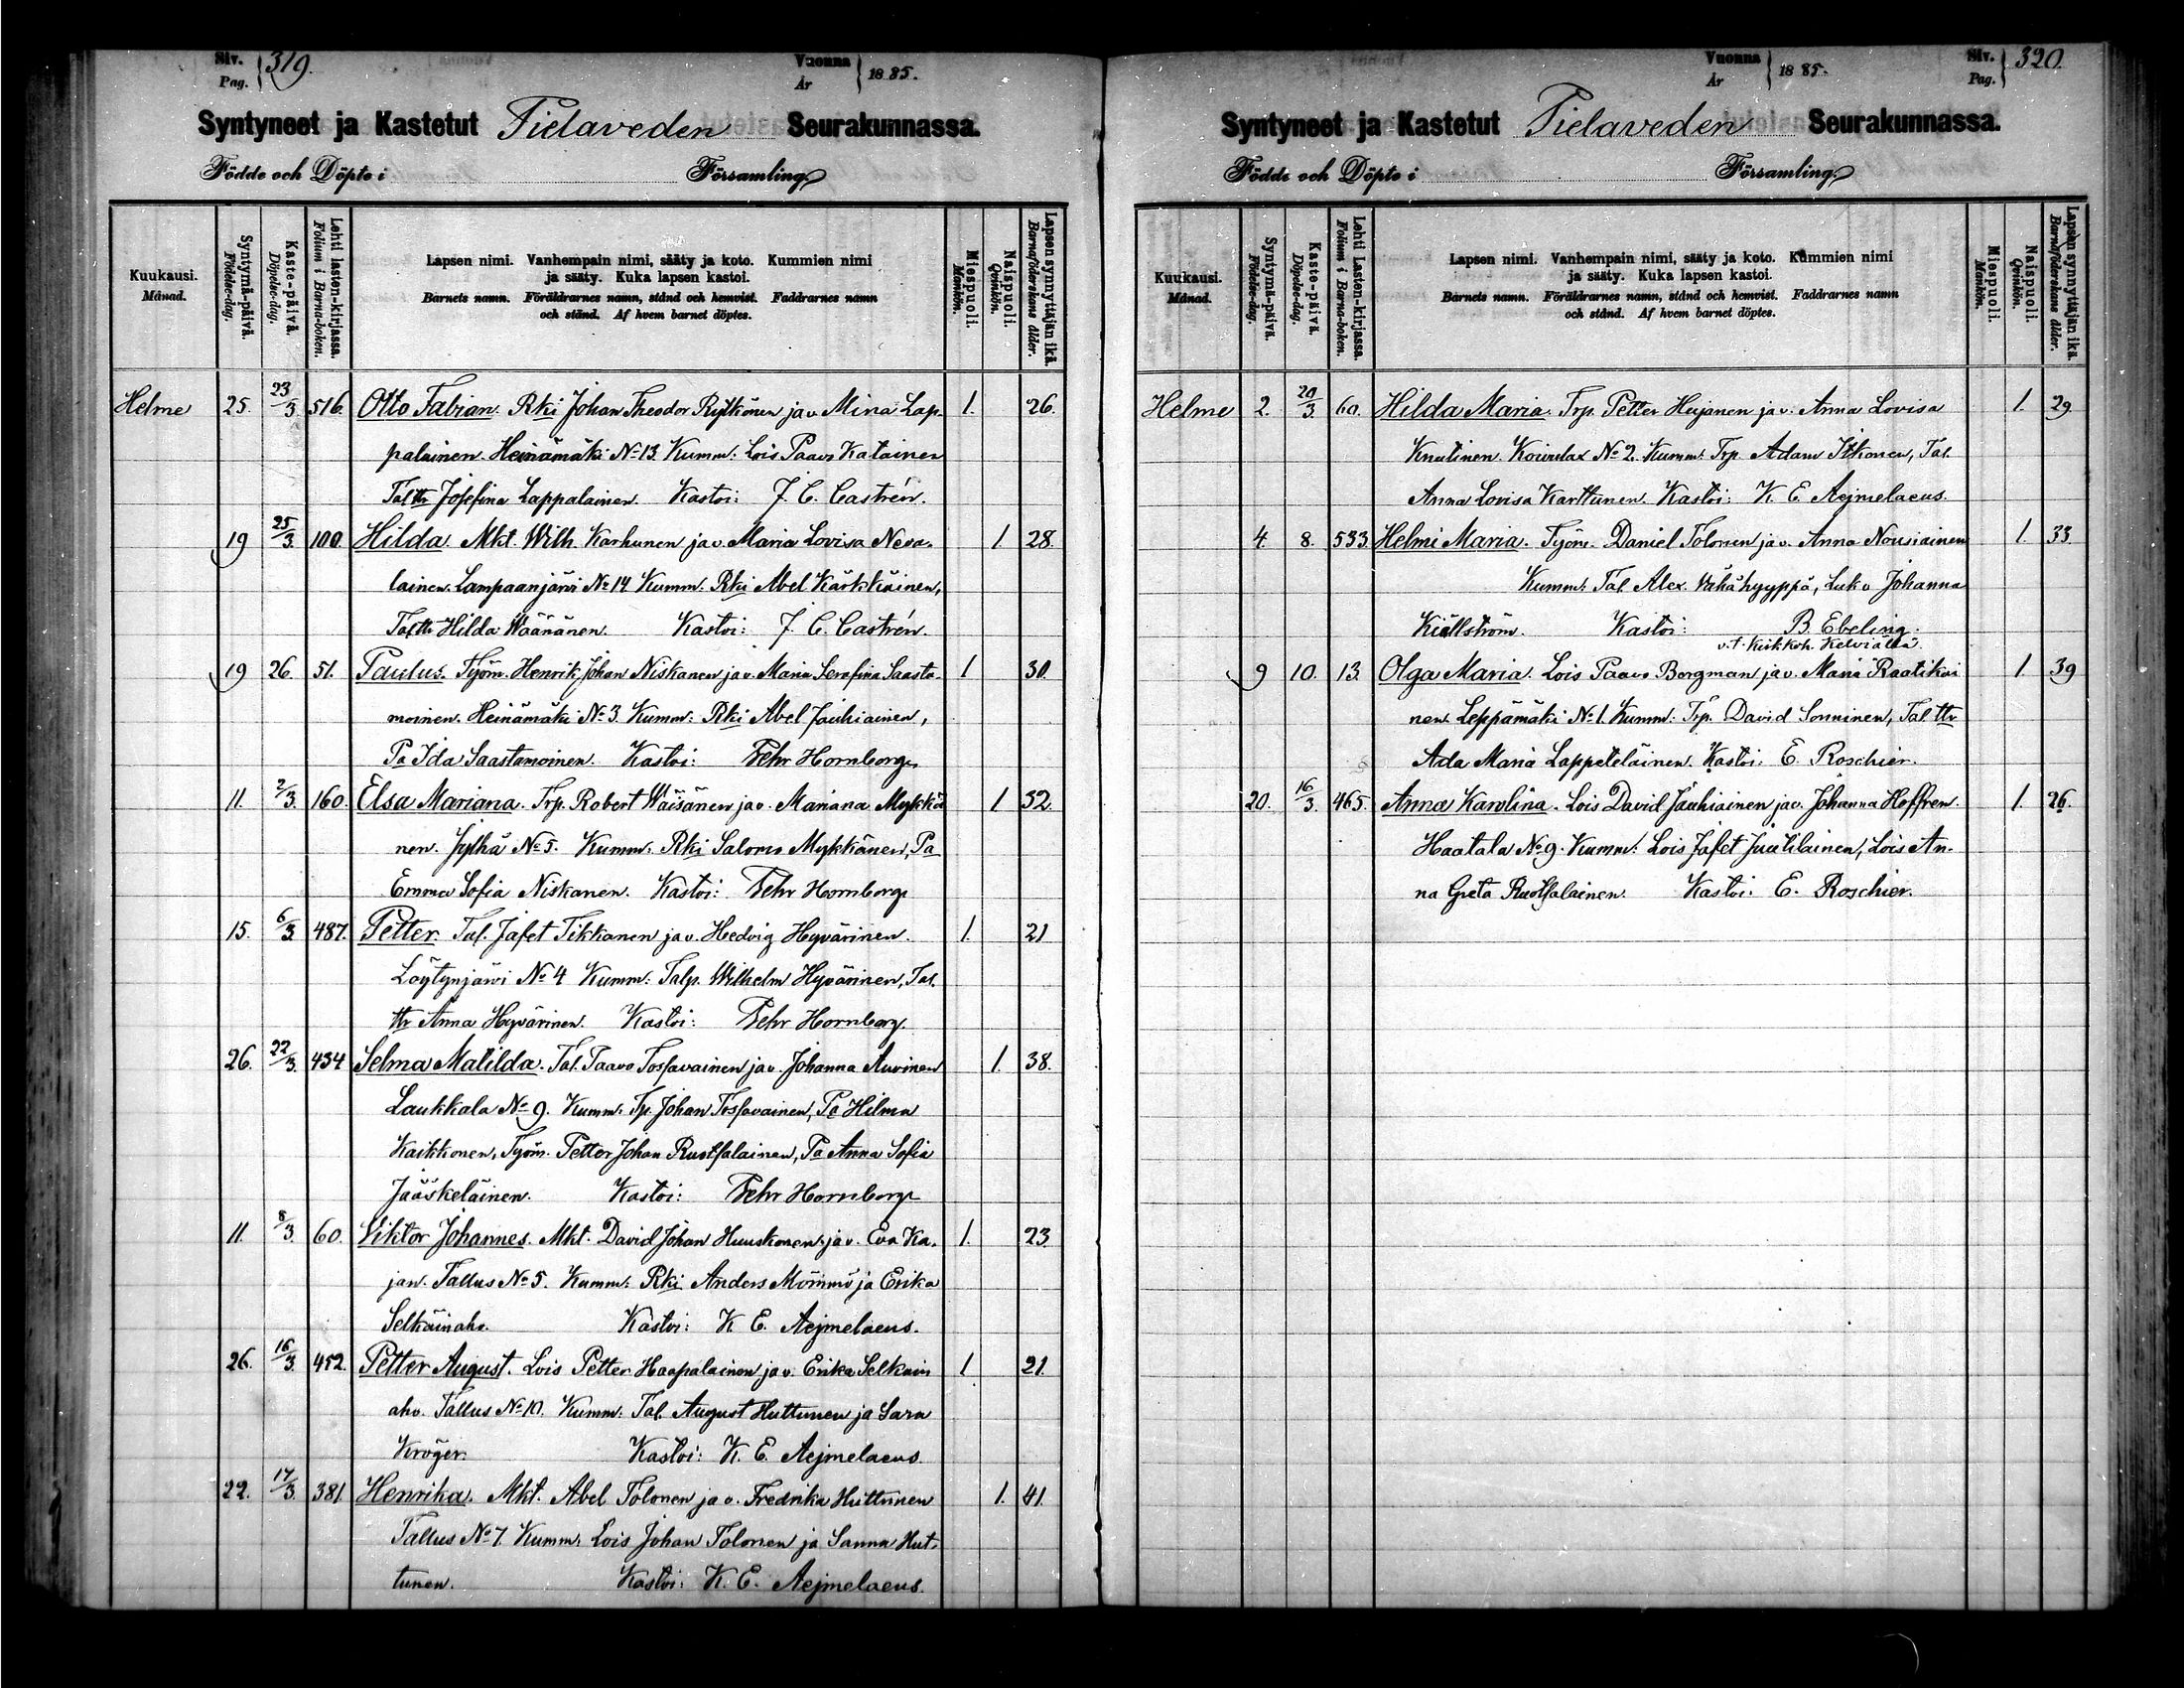 Siv. Pag. 319. Vuonna År 1885.
Syntyneet ja Kastetut Pielaveden Seurakunnassa.
Födde och Döpte i Församling.
Kuukausi. Månad.
Syntymä-päivä. Födelse-dag.
Kaste-päivä. Döpelse-dag.
Lehti lasten-kirjassa. Folium i Barna-boken.
Lapsen nimi. Vanhempain nimi, sääty ja koto. Kummien nimi
ja sääty. Kuka lapsen kastoi.
Barnets namn. Föräldrarnes namn, stånd och hemvist. Faddrarnes namn
och stånd. Af hvem barnet döptes.
Miespuoli. Mankön.
Naispuoli. Qvinkön.
Lapsen synnyttäjän ikä. Barnaföderskans ålder.
Helme 25. 23/3. 516. Otto Fabian. Rki Johan Theodor Rytkönen ja v. Mina Lap- 1. 26.
palainen. Heinämäki No 13. Kumm: Lois Paavo Katainen
Tal ttr Josefina Lappalainen. Kastoi: J. C. Castrén.
19 25/3. 100. Hilda. Mkt. Wilh. Karhunen ja v. Maria Lovisa Neva- 1. 28.
lainen. Lampaanjärvi No 14 Kumm. Rki Abel Kärkkäinen,
Tal ttr Hilda Wäänänen. Kastoi: J. C. Castrén.
19 26. 51. Paulus. Työm. Henrik Johan Niskanen ja v. Maria Serafina Saasta- 1 30.
moinen. Heinämäki No 3. Kumm: Rki Abel Jauhiainen,
Pa Ida Saastamoinen. Kastoi: Fehr Hornborg
11. 2/3. 160. Elsa Mariana. Trp. Robert Wäisänen ja v. Mariana Mykkä 1 32.
nen. Jylhä No 5. Kumm. Rki Salomo Mykkänen, Pa
Emma Sofia Niskanen. Kastoi: Fehr Hornborg
15. 6/3. 487. Petter. Tal. Jafet Tikkanen ja v. Hedvig Hyvärinen. 1. 21
Löytynjärvi No 4 Kumm: Talp. Wilhelm Hyvärinen, Tal.
ttr Anna Hyvärinen. Kastoi: Fehr Hornborg.
26. 22/3. 434 Selma Matilda. Tal. Paavo Tossavainen ja v. Johanna Auvinen 1. 38.
Laukkala No 9. Kumm. Tp. Johan Tossavainen, Pa Hilma
Kaikkonen, Työm. Petter Johan Ruotsalainen, Pa Anna Sofia
Jääskeläinen. Kastoi: Fehr Hornborg
11. 8/3. 60. Viktor Johannes. Mkt. David Johan Huuskonen ja v. Eva Ka- 1. 23.
jan. Tallus No 5. Kumm: Rki Anders Mömmö ja Erika
Selkäinaho. Kastoi: K. E. Aejmelaeus.
26. 16/3. 452. Petter August. Lois Petter Haapalainen ja v. Erika Selkäin 1 21.
aho. Tallus No 10. Kumm. Tal. August Huttunen ja Sara
Kröger. Kastoi: K. E. Aejmelaeus
22. 17/3. 381. Henrika. Mkt. Abel Tolonen ja v. Fredrika Huttunen 1. 41.
Tallus No 7. Kumm. Lois Johan Tolonen ja Sanna Hut-
tunen. Kastoi: K. E. Aejmelaeus.
Vuonna År 1885. Siv. Pag. 320.
Syntyneet ja Kastetut Pielaveden Seurakunnassa.
Födde och Döpte i Församling.
Kuukausi. Månad.
Syntymä-päivä. Födelse-dag.
Kaste-päivä. Döpelse-dag.
Lehti Lasten-kirjassa. Folium i Barna-boken.
Lapsen nimi. Vanhempain nimi, sääty ja koto. Kummien nimi
ja sääty. Kuka lapsen kastoi.
Barnets namn. Föräldrarnes namn, stånd och hemvist. Faddrarnes namn
och stånd. Af hvem barnet döptes.
Miespuoli. Mankön.
Naispuoli. Qvinkön.
Lapsen synnyttäjän ikä. Barnaföderskans ålder.
Helme 2. 20/3. 60. Hilda Maria. Trp. Petter Heijanen ja v. Anna Lovisa 1. 29.
Knutinen. No 2. Kumm. Trp. Adam Itkonen, Tal.
Anna Lovisa Karttunen. Kastoi: K. E. Aejmelaeus.
4. 8. 533. Helmi Maria. Työm. Daniel Tolonen ja v. Anna Nousiainen 1. 33.
Kumm: Tal. Alex. Vähähyyppä, Luk v Johanna
Kiällström. Kastoi: B. Ebeling.
v.t. Kirkkoh. Kelviällä
9 10. 13. Olga Maria. Lois Paavo Borgman ja v. Maria Raatikai 1. 39
nen. Leppämäki No 1. Kumm: Trp. David Sonninen, Tal ttr
Ada Maria Lappeteläinen. Kastoi: E. Roschier.
20. 16/3. 465. Anna Karolina. Lois David Jauhiainen ja v. Johanna Hoffren. 1. 26.
Haatala No 9. Kumm: Lois Jafet Juutilainen, Lois An-
na Greta Ruotsalainen. Kastoi: E. Roschier.